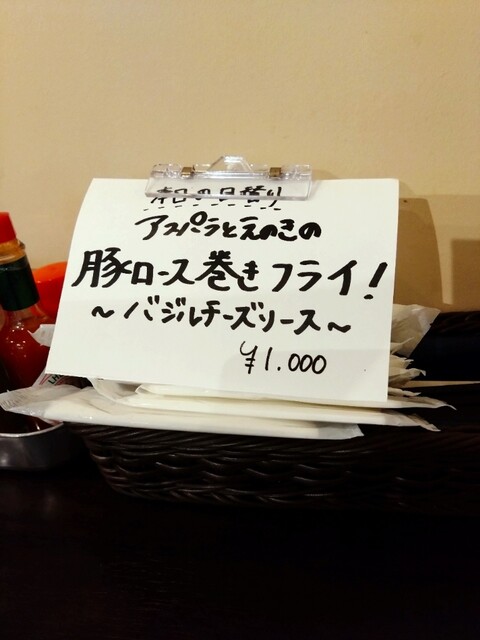 本日の日替り
アスパラとえのきの
豚ロース巻きフライ!
~バジルチーズソース~
¥1.000